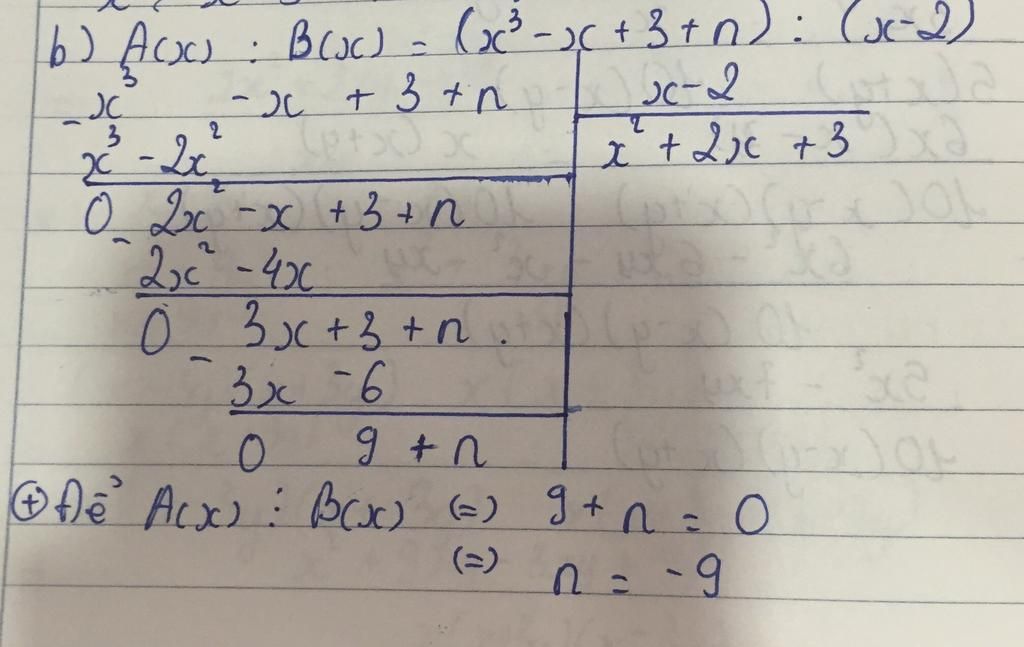 b) A(x) : B(x) = (x³ - x + 3 + n) : (x-2)
- x³ - x + 3 + n | x-2
x³ - 2x² | x² + 2x + 3
0 - 2x² - x + 3 + n
2x² - 4x
0 - 3x + 3 + n .
3x - 6
0 9 + n
⊕ Để A(x) ⋮ B(x) (=) 9 + n = 0
(=) n = -9